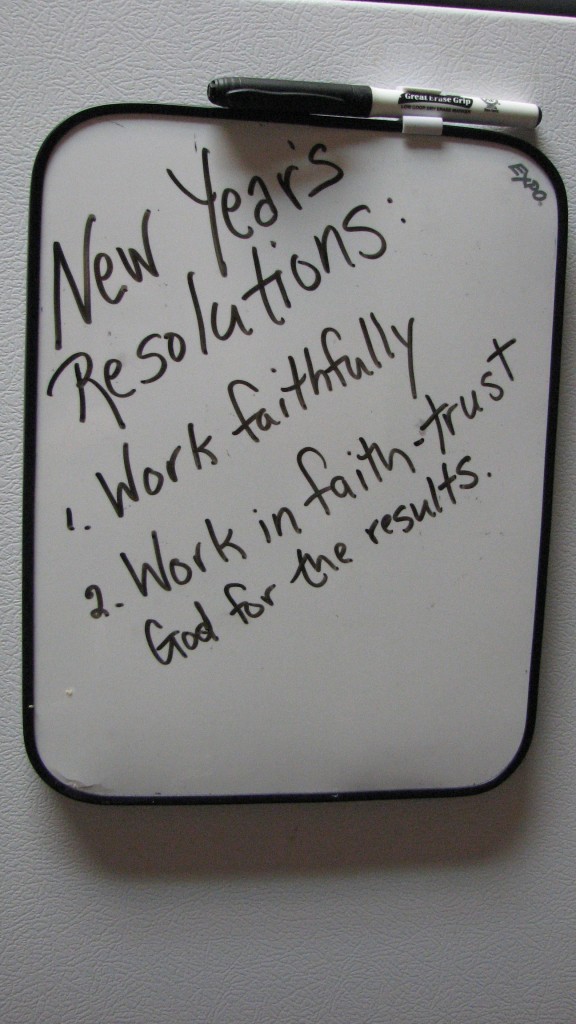 Great Erase Grip
EXPO
New Year's
Resolutions:
1. Work faithfully
2. Work in faith-trust
God for the results.